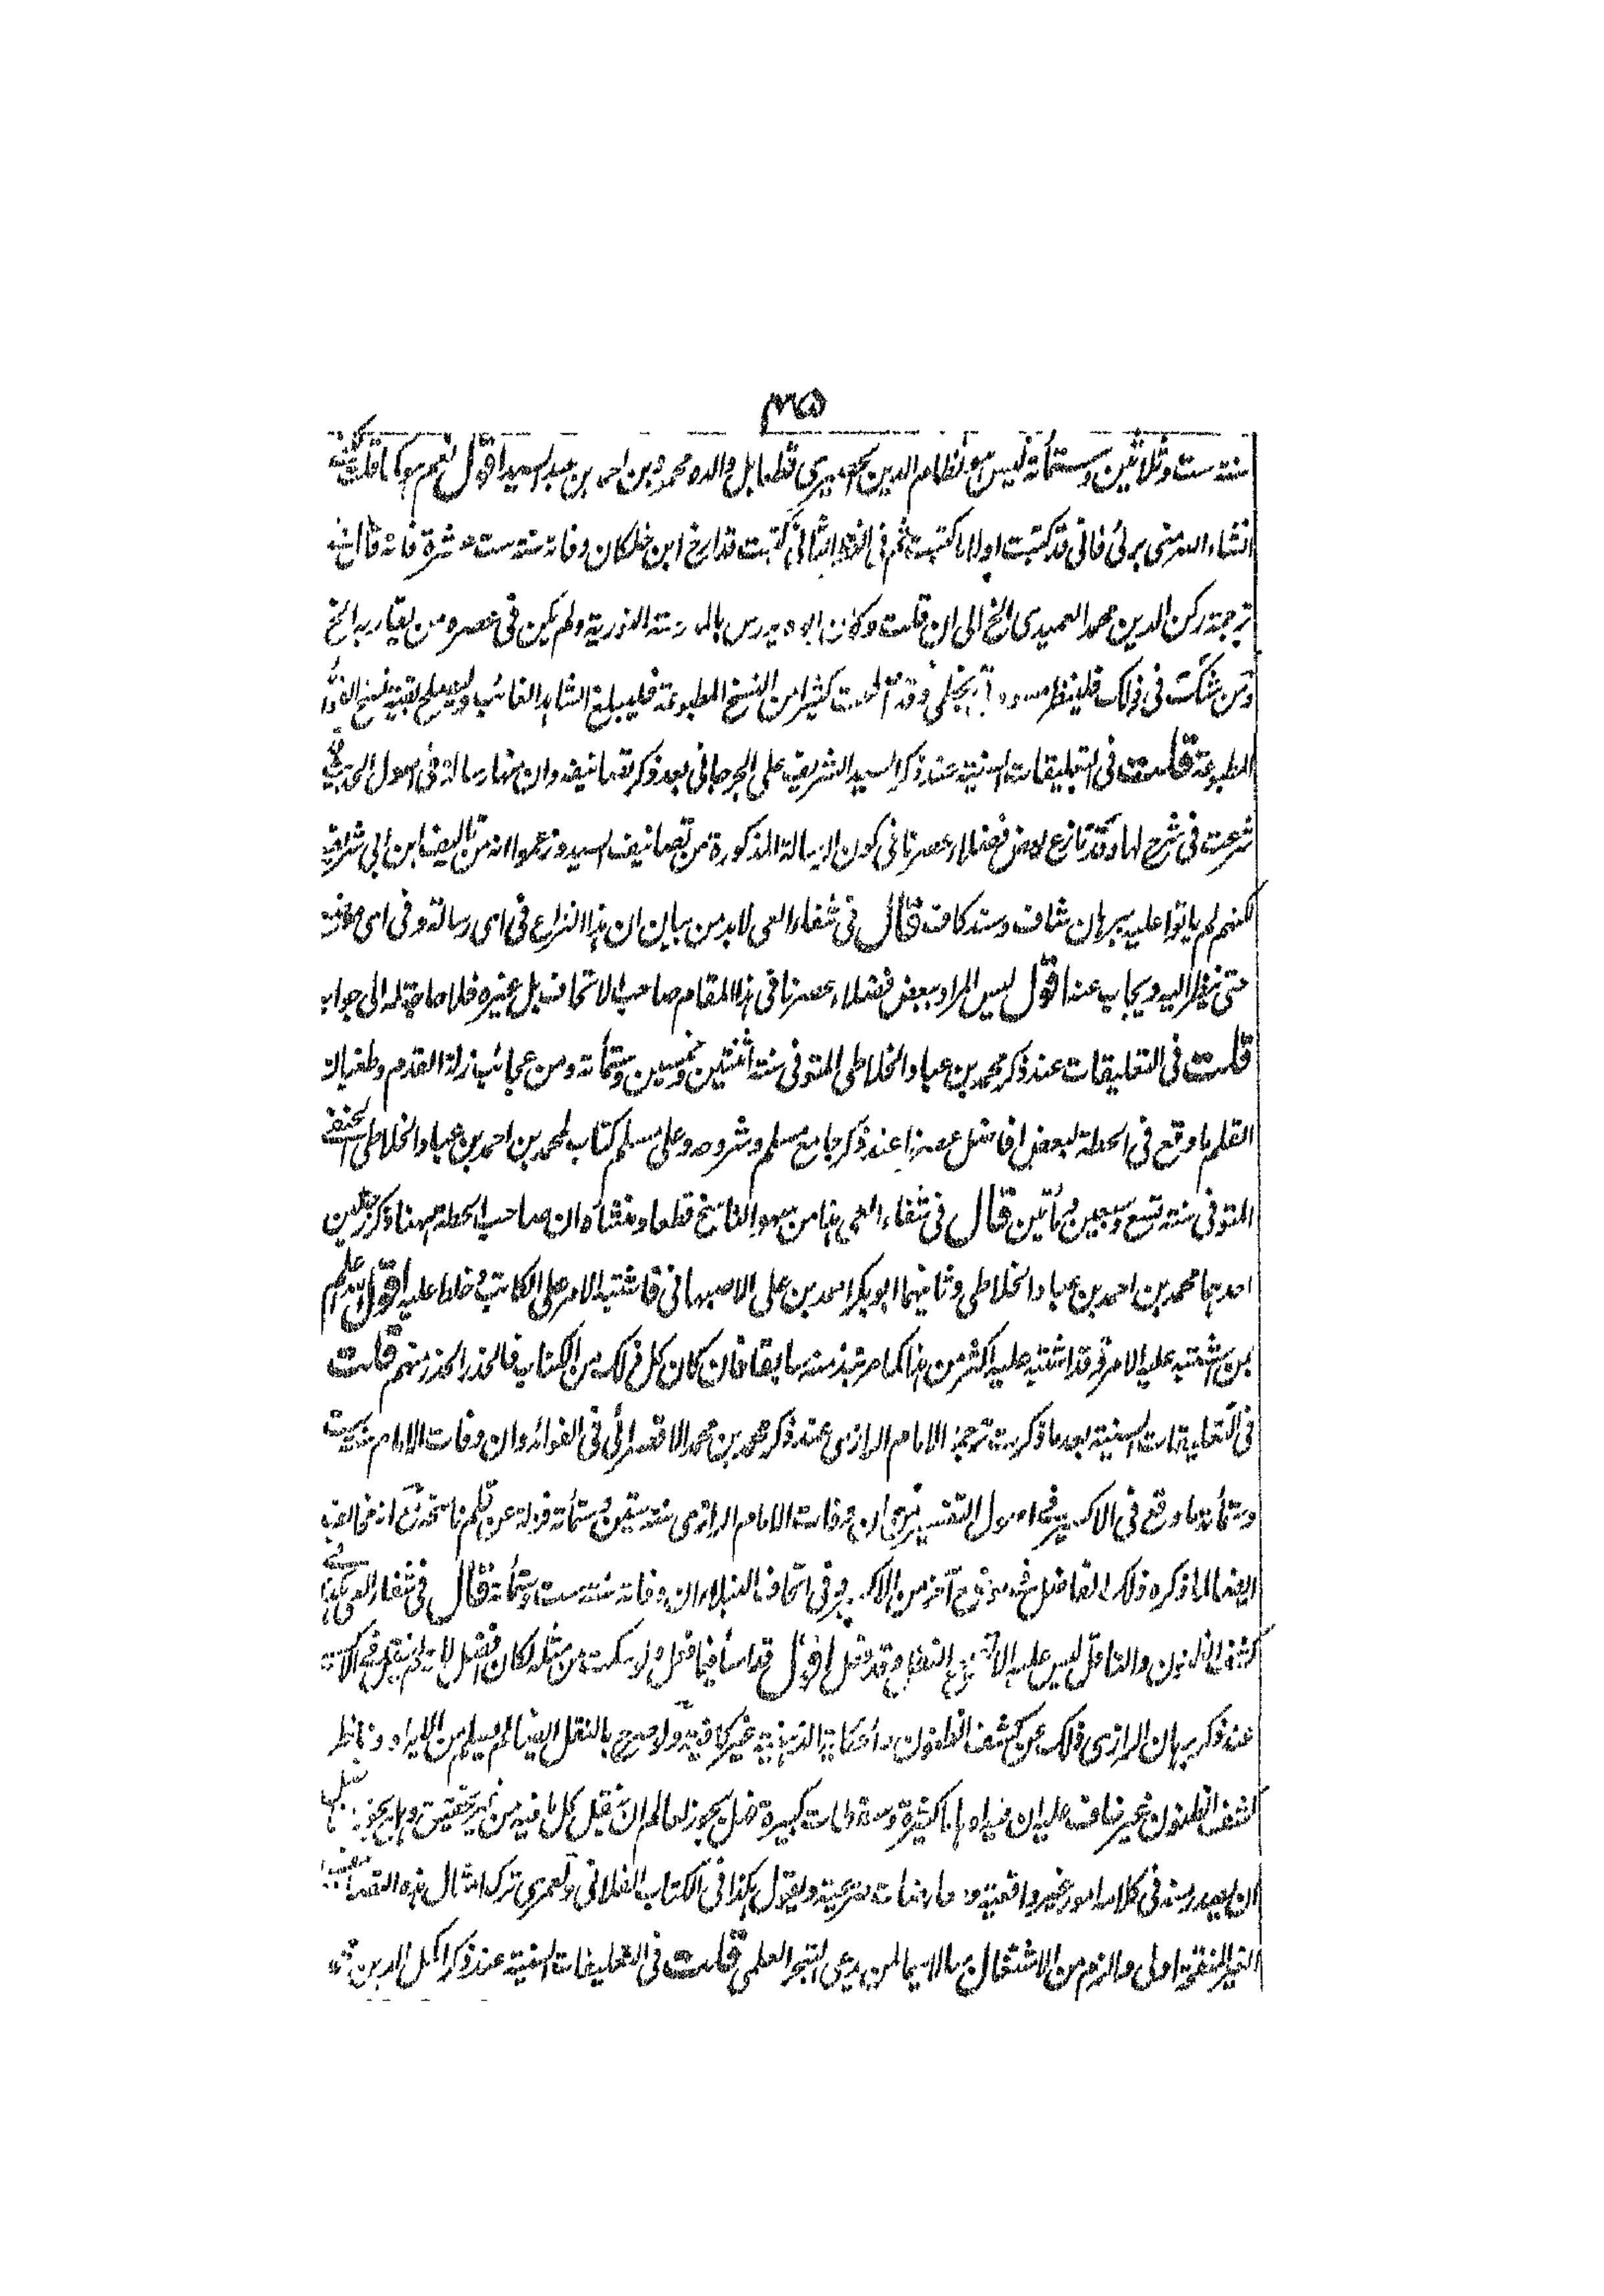 ٣٥
سنة ست وثلاثين وستمائة ليس هو نظام الدين الحصيري قطعا بل والده محمود بن احمد بن عبد السيد اقول نعم هو كما قلت لكنه
انشاء الله مني بريء فاني قد كتبت اولا ما كتبت ثم في النظر الثاني كتبت قد ارخ ابن خلكان وفاته سنة ست عشرة فانه قال في
ترجمة ركن الدين محمد العميدي الخ الى ان قلت وكان ابوه يدرس بالمدرسة النورية ولم يكن في عصره من يقاربه الخ
ومن شكت في ذلك فلينظر مسودتي بخطي وقد كثيرا من النسخ المطبوعة فليبلغ الشاهد الغائب وليصلح بقية نسخ الفوائد
المطبوعة قلت في التعليقات السنية عند ذكر السيد الشريف علي الجرجاني بعد ذكر تصانيفه وان منها رسالة في اصول الحديث
شرعت في شرح لها وقد تنازع بعض فضلاء عصرنا في كون الرسالة المذكورة من تصانيف السيد وزعموا انه من تاليف ابن ابي شريف
لكنهم لم ياتوا عليه ببرهان شاف وسند كاف قال في شفاء العي لابد من بيان ان هذا النزاع في اي رسالة وفي اي صفحة
حتى ينظر اليه ويجاب عنه اقول ليس المراد ببعض فضلاء عصرنا في هذا المقام صاحب الاتحاف بل غيره فلا حاجة له الى جوابه
قلت في التعليقات عند ذكر محمد بن عباد الخلاطي المتوفى سنة اثنتين وخمسين وستمائة ومن عجائب زلة القدم وطغيان
القلم ما وقع في الحطة لبعض افاضل عصرنا عند ذكر جامع مسلم وشروحه وعلى مسلم كتاب لمحمد بن احمد بن عباد الخلاطي الحنفي
المتوفى سنة تسع وسبعين ومأتين قال في شفاء العي هذا من سهو الناسخ قطعا ومنشاه ان صاحب الحطة ههنا ذكر رجلين
احدهما محمد بن احمد بن عباد الخلاطي وثانيهما ابو بكر احمد بن علي الاصبهاني فاشتبه الامر على الكاتب فخلط عليه اقول الله اعلم
بمن اشتبه عليه الامر وقد اشتبه عليه اكثر من هذا كما مر نبذ منه سابقا فان كان كل ذلك من الكتاب فالحذر الحذر منهم قلت
في التعليقات السنية بعد ما ذكرت ترجمة الامام الرازي عند ذكر محمد بن محمد الاقسرائي في الفوائد وان وفات الامام سنة ست
وستمائة ما وقع في الاكسير في اصول التفسير من ان وفات الامام الرازي سنة ستين وستمائة فزلة عن قلم ناسخه مع انه مخالف
ايضا لما ذكره ذلك الفاضل في موضع آخر من الاكسير وفي اتحاف النبلاء ان وفاته سنة ست وستمائة قال في شفاء العي
كشف الظنون والناقل ليس عليه الا تصحيح النقل وقد فعل اقول قد اساء فيما فعل ولو سكت من مثله لكان افضل
عند ذكر برهان الرازي ذلك عن كشف الظنون والحكاية الذهنية غير كافية ولو صرح بالنقل ايضا لم يسلم من الايراد وناظر
كشف الظنون غير خاف عليه ان فيه اوهاما كثيرة ومسقطات كبيرة فهل يجوز لعالم ان ينقل كل ما فيه من غير تحقيق وهل يجوز
ان يصدر منه في كلامه امور غير واقعية ومعارضات صريحة ويقول هكذا في الكتاب الفلاني ولعمري ترك امثال هذه التصانيف
الغير المنقحة اولى والزم من الاشتغال بها لاسيما لمن يدعي التبحر العلمي قلت في التعليقات السنية عند ذكر اكمل الدين